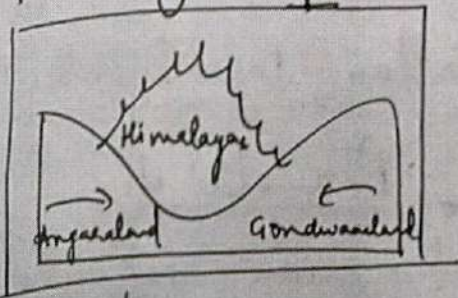 Himalayas
Angaraland
Gondwanaland